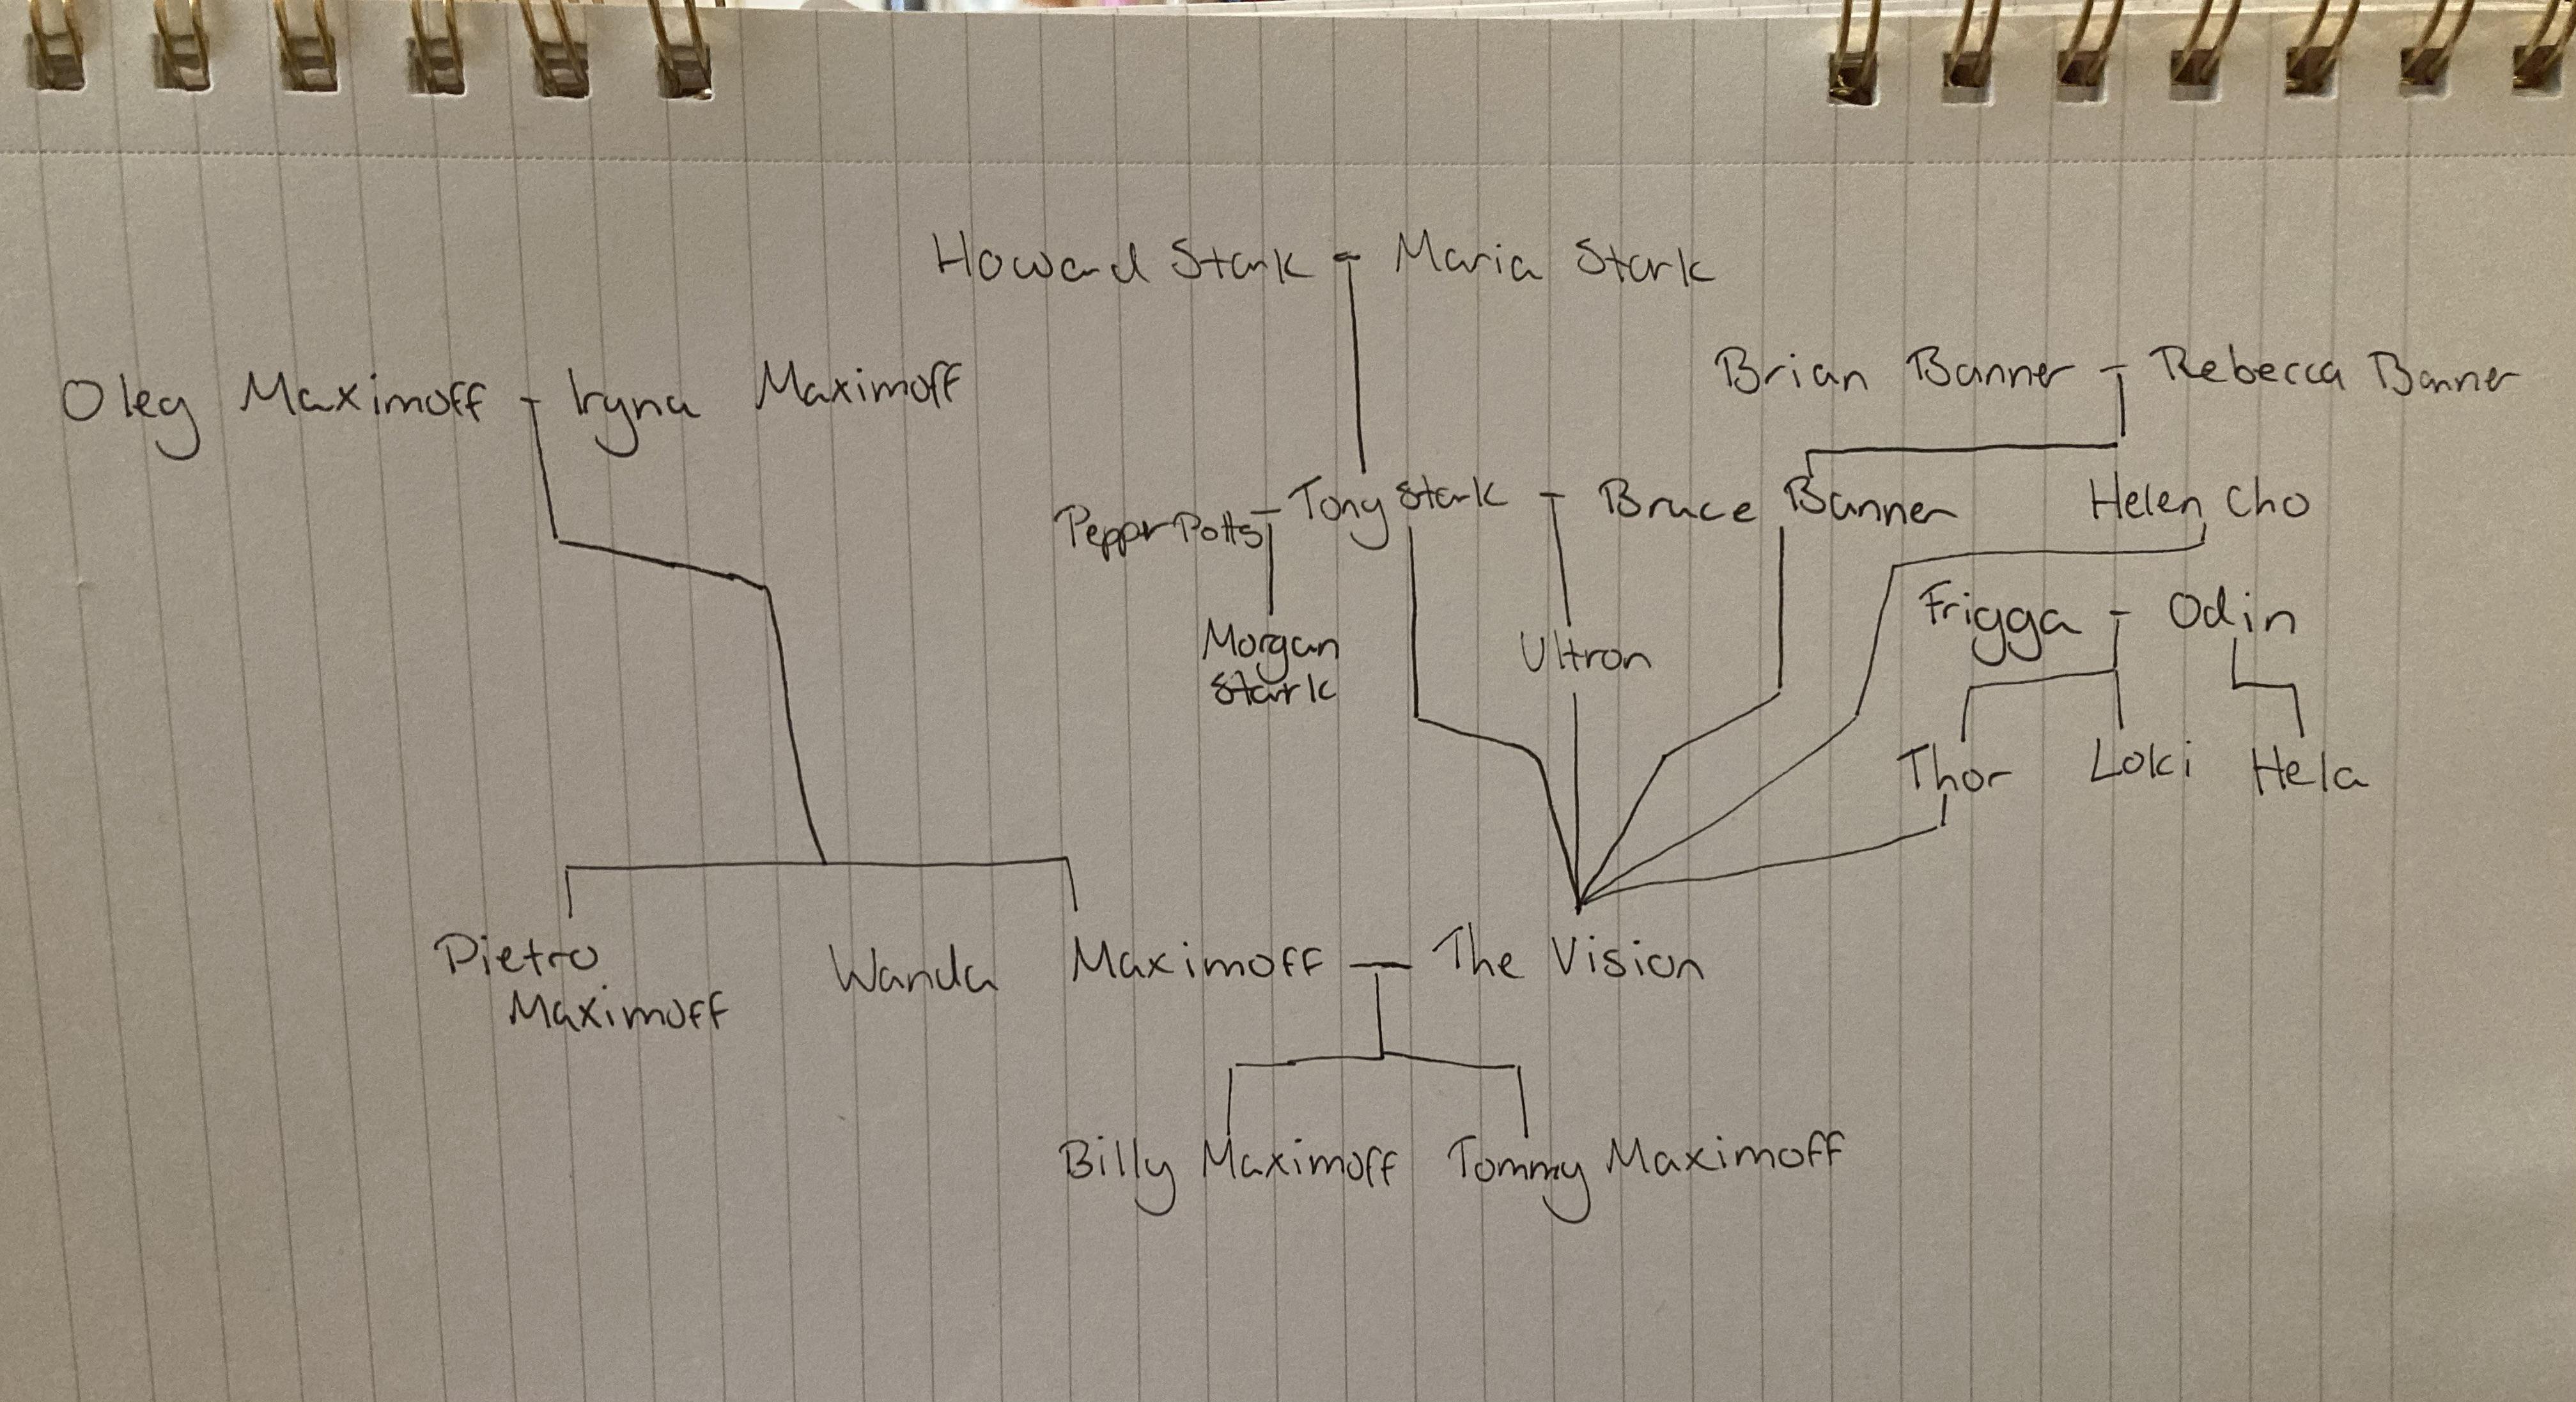 Howard Stark - Maria Stark
Oleg Maximoff - Iryna Maximoff
Brian Banner - Rebecca Banner
Pepper Potts - Tony Stark - Bruce Banner
Helen Cho
Frigga - Odin
Morgan
Stark
Ultron
Thor
Loki
Hela
Pietro
Maximoff
Wanda Maximoff - The Vision
Billy Maximoff
Tommy Maximoff